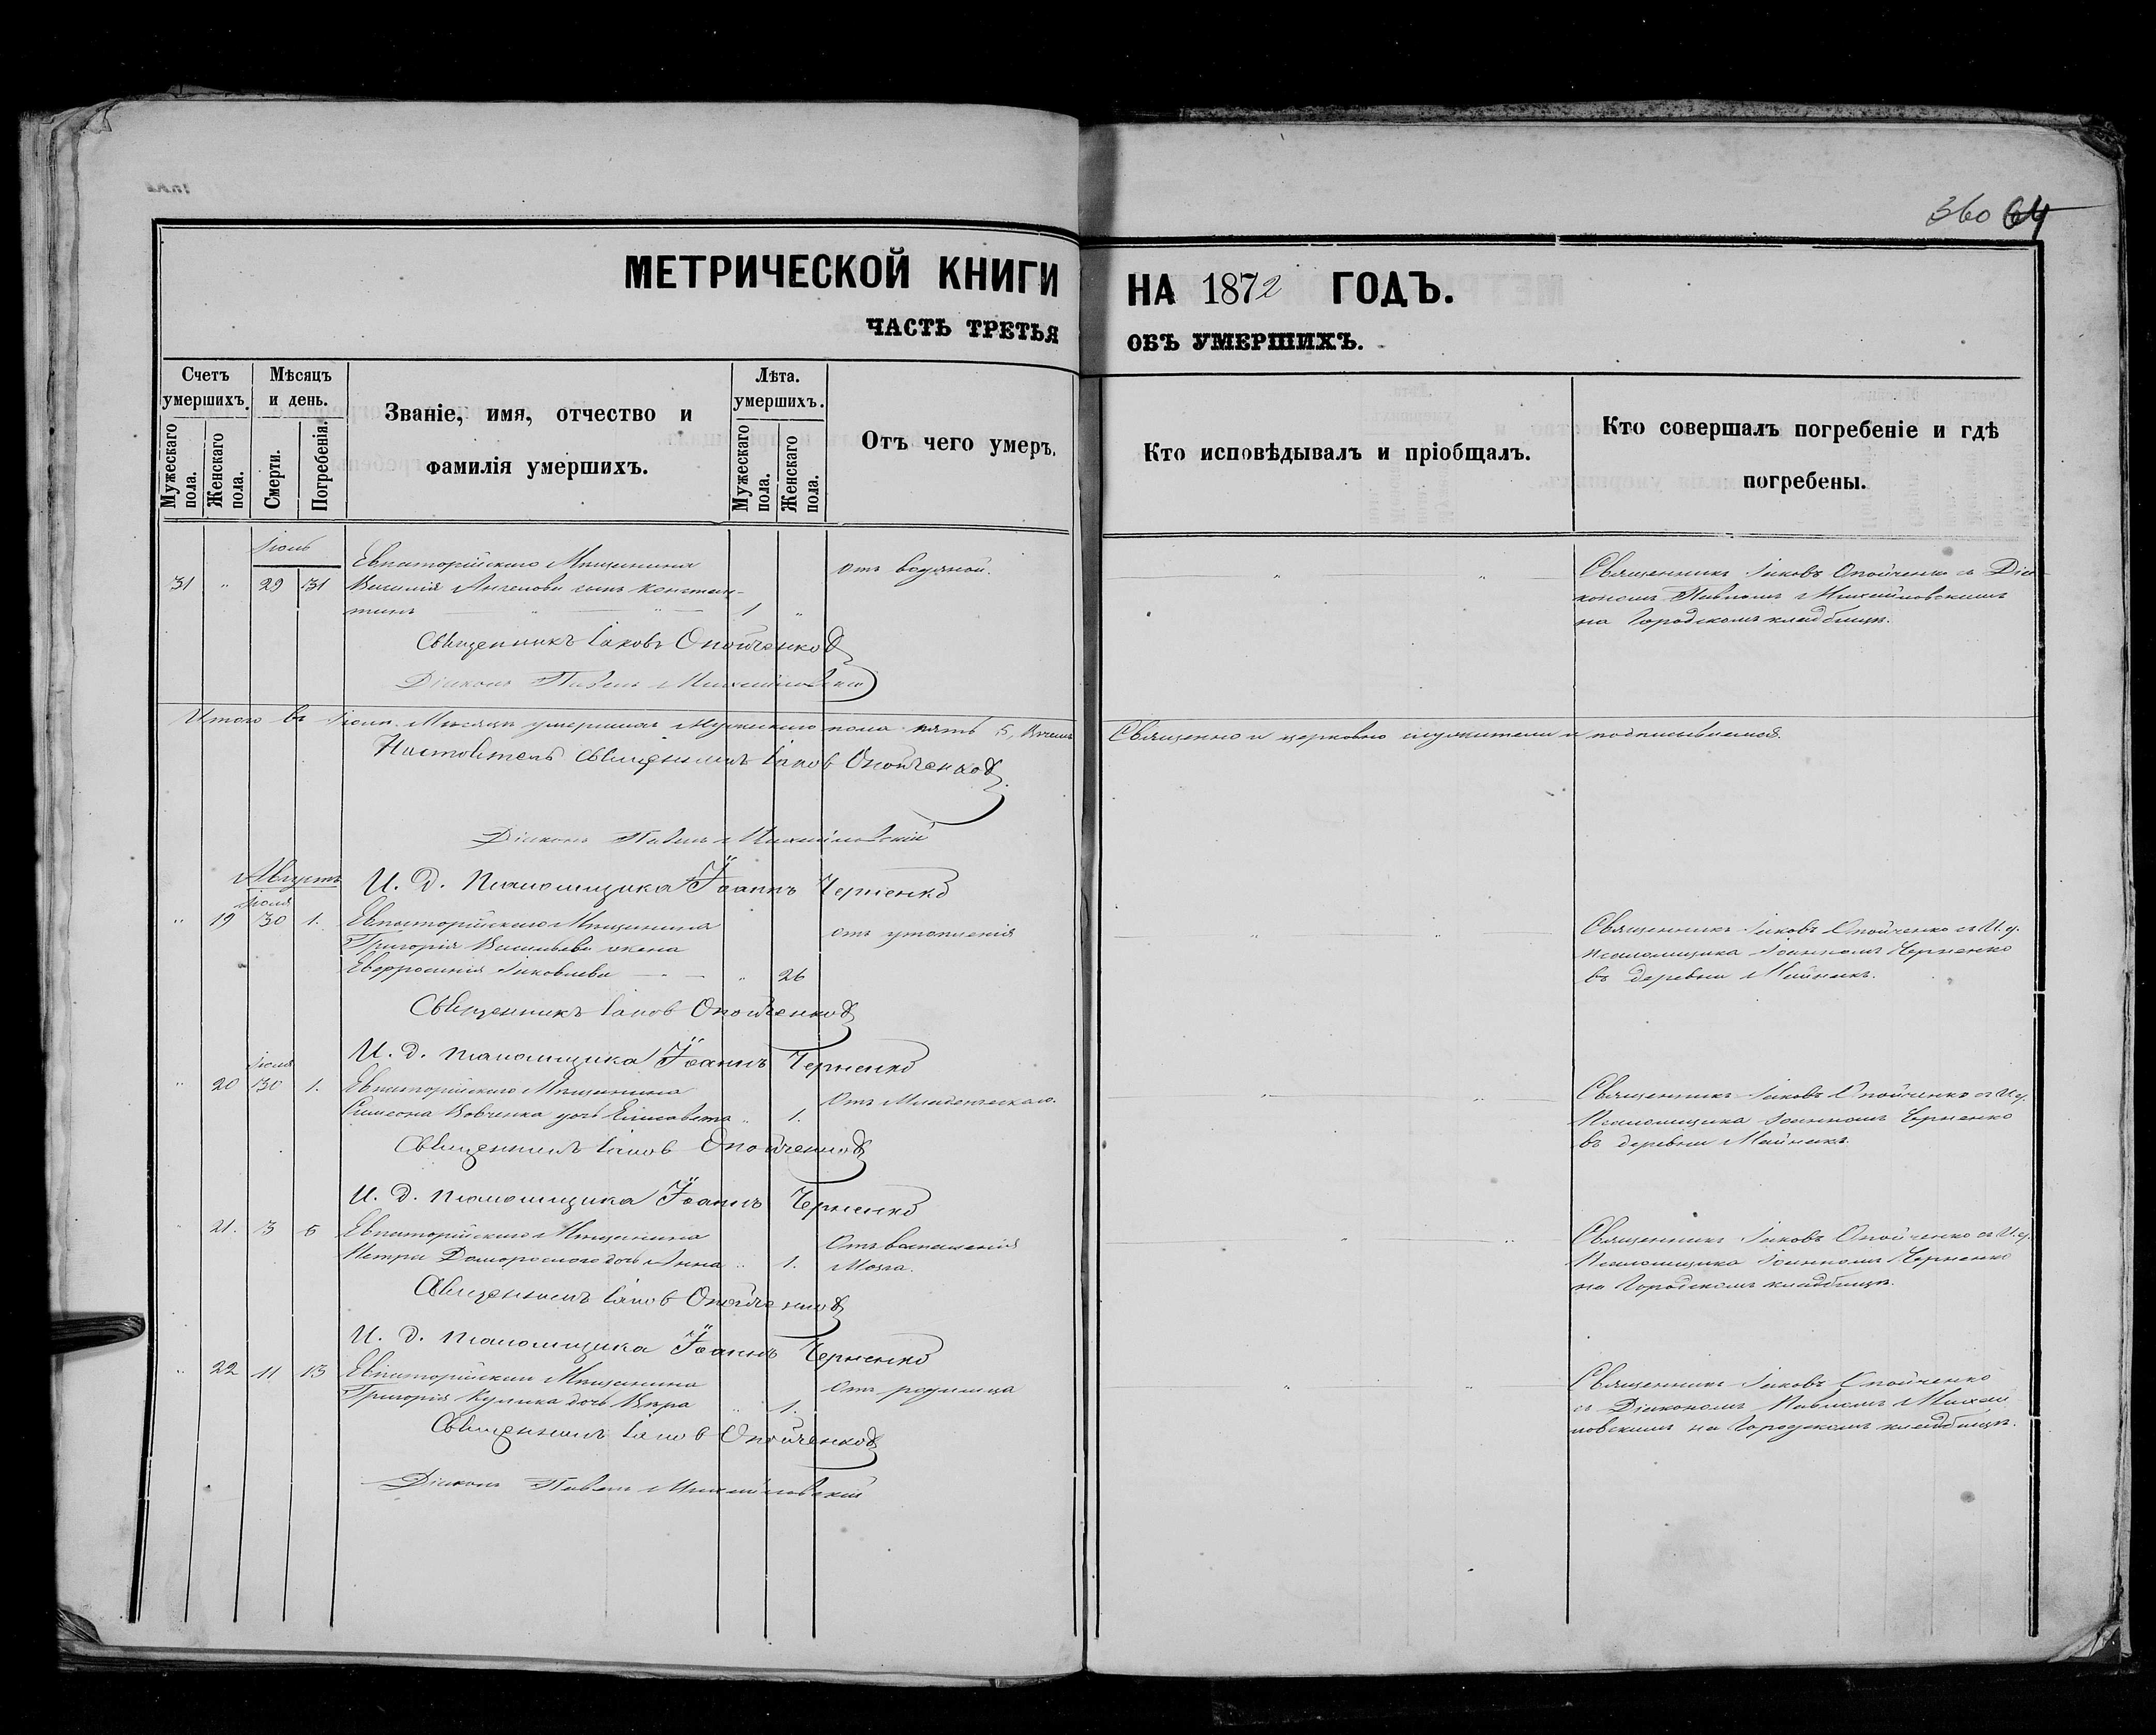 360 64
МЕТРИЧЕСКОЙ КНИГИ НА 1872 ГОДЪ.
ЧАСТЬ ТРЕТЬЯ ОБЪ УМЕРШИХЪ.
Счетъ умершихъ.
Мужескаго пола.
Женскаго пола.
Мѣсяцъ и день.
Смерти.
Погребенія.
Званіе, имя, отчество и
фамилія умершихъ.
Лѣта.
умершихъ.
Мужескаго пола.
Женскаго пола.
Отъ чего умеръ.
Кто исповѣдывалъ и пріобщалъ.
Кто совершалъ погребеніе и гдѣ
погребены.
Іюль
31 " 29 31
Евпаторійскаго Мѣщанина
Василія Ангелова сынъ Констан-
тинъ 1 "
отъ водяной.
Священникъ Іаковъ Опойченко съ Діа-
кономъ Павломъ Михайловскимъ
на Городскомъ кладбищѣ.
Священникъ Іаковъ Опойченко
Діаконъ Павелъ Михайловскій
Итого въ Іюлѣ Мѣсяцѣ умершихъ Мужескаго пола пять 5,
Священно и церковно служители и подписываемся.
Настоятель Священникъ Іаковъ Опойченко
Діаконъ Павелъ Михайловскій
И. д. Псаломщика Іоаннъ Черненко
Августъ
Іюля
" 19 30 1.
Евпаторійскаго Мѣщанина
Григорія Васильева жена
Евфросинія Іаковлева " 26
отъ утопленія
Священникъ Іаковъ Опойченко съ И. д.
Псаломщика Іоанномъ Черненко
въ деревни Майнакъ.
Священникъ Іаковъ Опойченко
И. д. Псаломщика Іоаннъ Черненко
Іюля
" 20 30 1.
Евпаторійскаго Мѣщанина
Симеона Вовченка дочь Елисавета " 1.
Отъ Младенческаго.
Священникъ Іаковъ Опойченко съ И. д.
Псаломщика Іоанномъ Черненко
въ деревни Майнакъ.
Священникъ Іаковъ Опойченко
И. д. Псаломщика Іоаннъ Черненко
" 21. 3 5
Евпаторійскаго Мѣщанина
Петра Доморослаго дочь Анна " 1.
Отъ воспаленія
Мозга.
Священникъ Іаковъ Опойченко съ И. д.
Псаломщика Іоанномъ Черненко
на Городскомъ кладбищѣ.
Священникъ Іаковъ Опойченко
И. д. Псаломщика Іоаннъ Черненко
" 22 11 13
Евпаторійскаго Мѣщанина
Григорія Кулика дочь Вѣра " 1.
Отъ родимца
Священникъ Іаковъ Опойченко
съ Діакономъ Павломъ Михай
ловскимъ на Городскомъ кладбищѣ.
Священникъ Іаковъ Опойченко
Діаконъ Павелъ Михайловскій